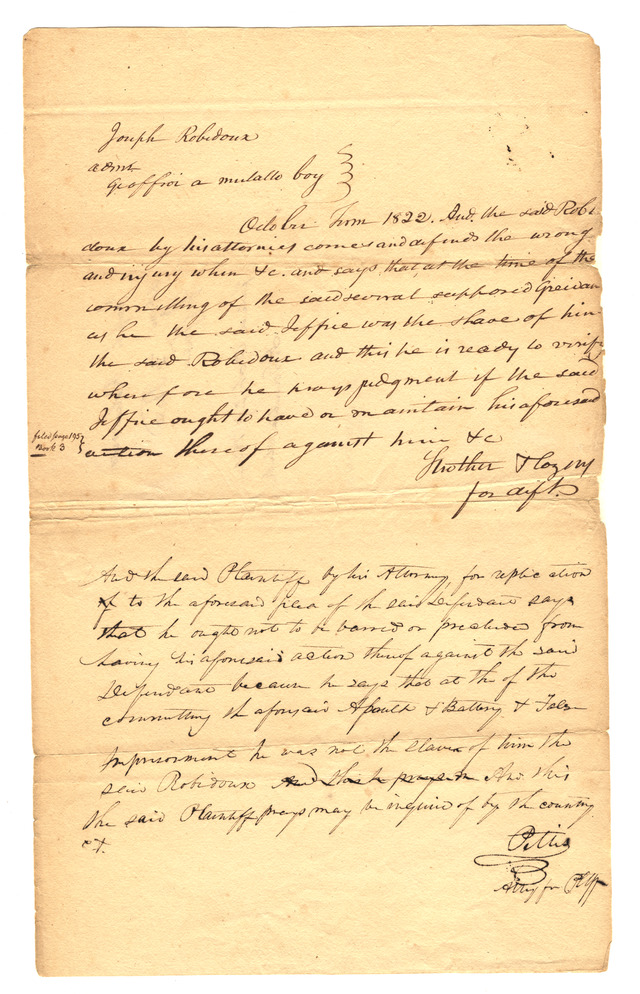 Joseph Robidoux
adms
Geoffroi a mulatto boy
October Term 1822. And the said Robi
doux by his attornies comes and defends the wrong
and injury when &c. and says that at the time of the
committing of the said several supposed Greivan
as he the said Jeffrie was the slave of him
the said Robidoux and this he is ready to verify
wherefore he prays judgment if the said
Jeffrie ought to have or maintain his aforesaid
action thereof against him &c
filed page 195
Book 3
Strother &
for deft.
And the said Plaintiff by his Attorney, for replication
to the aforesaid plea of the said Defendant says
that he ought not to be barred or precluded from
having his aforesaid action thereof against the said
Defendant because he says that at the of the
committing the aforsaid Assault & Battery & False
Imprisonment he was not the slave of him the
said Robidoux And this he prays And this
the said Plaintiff prays may be inquired of by the country
&.
Pettis
Atty for Plff